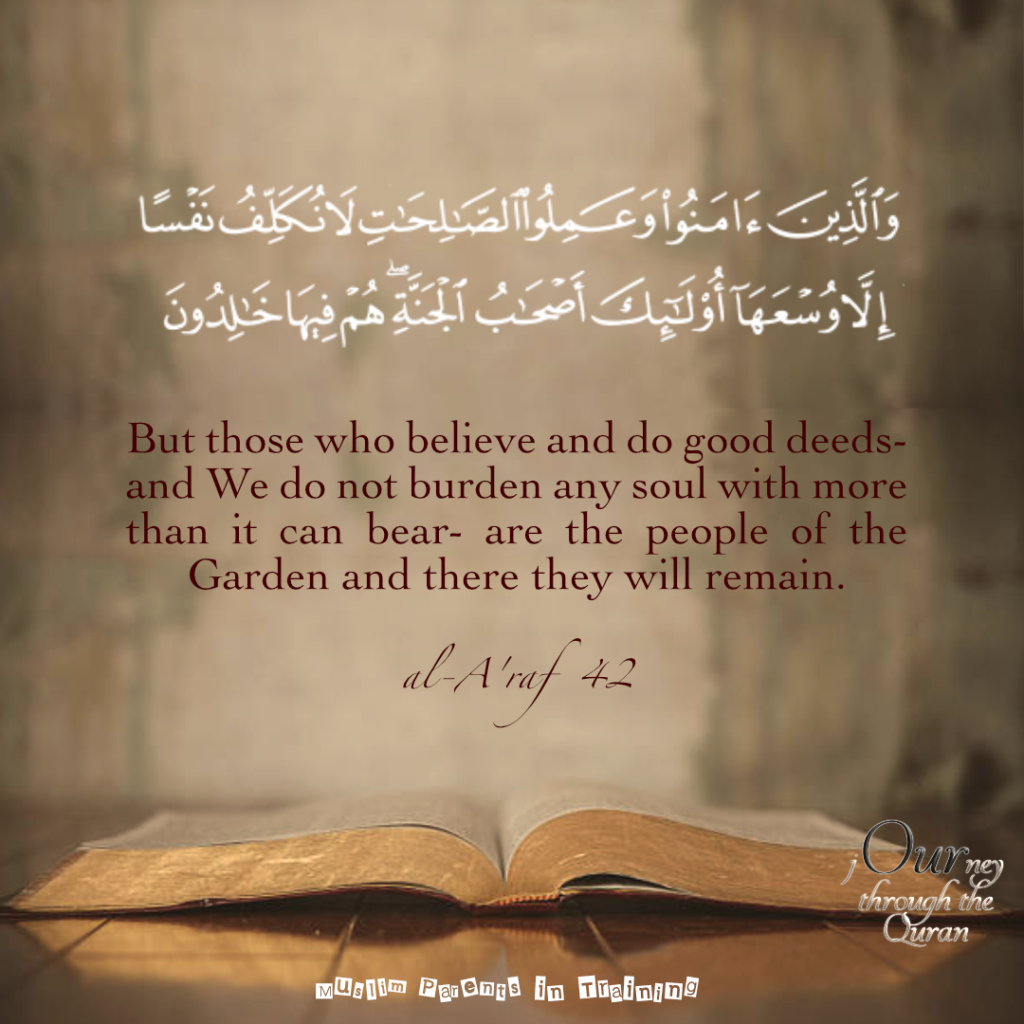 وَٱلَّذِينَ ءَامَنُوا۟ وَعَمِلُوا۟ ٱلصَّـٰلِحَـٰتِ لَا نُكَلِّفُ نَفْسًا
إِلَّا وُسْعَهَآ أُو۟لَـٰٓئِكَ أَصْحَـٰبُ ٱلْجَنَّةِ ۖ هُمْ فِيهَا خَـٰلِدُونَ
But those who believe and do good deeds-
and We do not burden any soul with more
than it can bear- are the people of the
Garden and there they will remain.
al-A'raf 42
jOurney
through the
Quran
Muslim Parents in Training